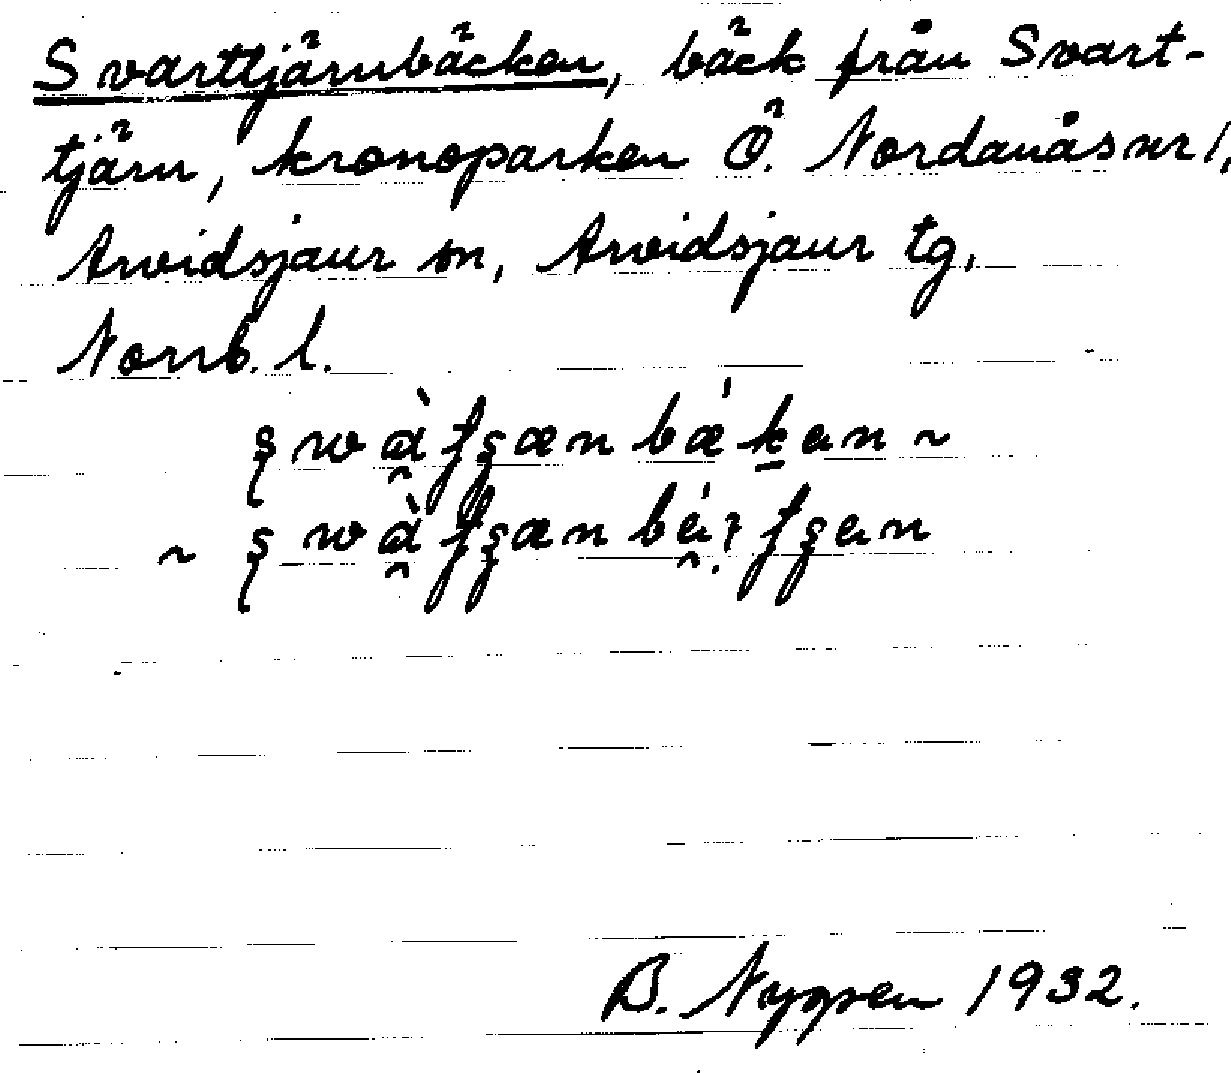 Svarttjärnbäcken, bäck från Svart-
tjärn, kronoparken Ö. Nordanås nr 1,
Arvidsjaur sn, Arvidsjaur tg,
Norrb. l.
B. Nygren 1932.